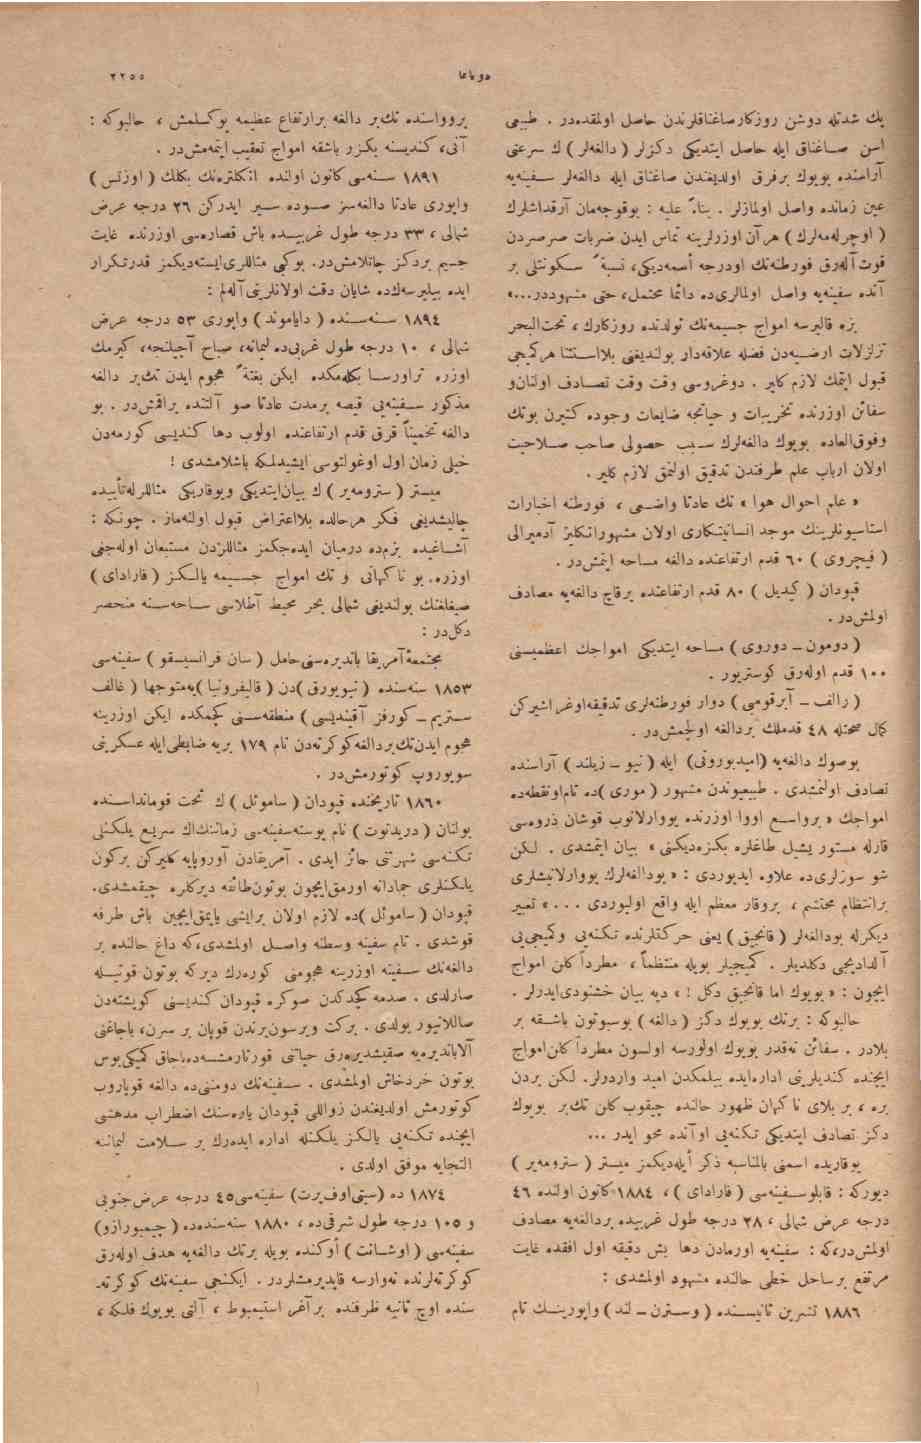 دونانما
٢٢٥٥
پك شدتله دوشن روزكار صاغناقلرندن حاصل اولمقده‌در . طبیعی
اسن صاغناق ایله حاصل ایتدیكی دكزلر ( دالغه‌لر ) ك سرعتی
آراسنده بویوك برفرق اولدیغندن صاغناق ایله دالغه‌لر سفینه‌یه
عین زمانده واصل اولمازلر . بناءً علیه : بوقوجه‌مان آرقداشلرك
( اوچرله‌مه‌لرك ) هر آن اوزرلرینه تماس ایدن ضربات صرصردن
قوت آله‌رق فورطنه‌نك اودرجه أسمه‌دیكی، نسبةً سكونتلی بر
آنده سفینه‌یه واصل اولمالری‌ده دائما محتمل، حتی مشهوددر...»
بزه قالیرسه امواج جسیمه‌نك تولدنده روزكارك ، تحت‌البحر
تزلزلات ارضیه‌دن فضله علاقه‌دار بولندیغنی بلااستثنا هركیجی
قبول ایتمك لازم كلیر . دوغروسی وقت وقت تصادف اولنان‌و
سفائن اوزرنده تخریبات و حیاتجه ضایعات وجوده كتیرن بوتك
وفوق‌العاده بویوك دالغه‌لرك سبب حصولی صاحب صلاحیت
اولان ارباب علم طرفندن تدقیق اولنمق لازم كلیر .
« علم احوال هوا » نك عادتا واضعی ، فورطنه اخبارات
استاسیونلرینك موجد انسانیتكاری اولان مشهور انكلیز آدمیرالی
( فیچروی ) ٦٠ قدم ارتفاعنده دالغه مساحه ایتمش‌در .
قپودان ( كیدیل ) ٨٠ قدم ارتفاعنده برقاچ دالغه‌یه مصادف
اولمش‌در .
( دومون ـ دوروی ) مساحه ایتدیكی امواجك اعظمیسنی
١٠٠ قدم اوله‌رق كوستریور .
( رالف ـ آبرقومبی ) دوار فورطنه‌لری تدقیقه‌اوغراشیركن
كمال صحتله ٤٨ قدملك بردالغه اولچمش‌در .
بوصوك دالغه‌یه (امیدبورونی) ایله ( نیو ـ زیلند ) آراسنده
تصادف اولنمشدی . طبیعیوندن مشهور ( موری )ده تام‌اونقطه‌ده
امواجك « برواسع اووا اوزرنده یووارلانوب قوشان ذروه‌سی
قارله مستور یشیل طاغلره بكزه‌دیكنی » بیان ایتمشدی . لكن
شو سوزلری‌ده علاوه ایدیوردی : « بودالغه‌لرك یووارلانیشلری
برانتظام محتشم ، بروقار معظم ایله واقع اولیوردی ... » تعبیر
دیكرله بودالغه‌لر ( قانجیق ) یعنی حركتلرنده تكنه‌یی وكمیجی‌یی
آلدادیجی دكلدیلر . كمیجیلر بویله منتظماً ، مطرداً كلن امواج
ایچون : « بویوك اما قانجیق دكل ! » دیه بیان خشنودی‌ایدرلر .
حالبوكه : برتك بویوك دكز ( دالغه ) بوسبوتون باشقه بر
بلادر . سفائن نه‌قدر بویوك اولورسه اولسون مطرداً كلن‌امواج
ایچنده كندیلرینی اداره‌ایده بیلمكدن امید واردرلر. لكن بردن
بره ، بر بلای ناكهان ظهور حالنده چیقوب كلن تك‌بر بویوك
دكز تصادف ایتدیكی تكنه‌یی اوآنده محو ایدر ...
یوقاریده اسمنی بالمناسبه ذكر أیله‌دیكمز میستر ( سترومه‌یر )
دیوركه : قابلوسفینه‌سی ( فارادای ) ، ١٨٨٤ كانون اولنده ٤٦
درجه عرض شمالی ، ٢٨ درجه طول غربیده بردالغه‌یه مصادف
اولمش‌در،كه : سفینه‌یه اورمادن دها بش دقیقه اول افقده غایت
مرتفع برساحل خطی حالنده مشهود اولمشدی :
١٨٨٦ تشرین ثانیسنده ( وسترن ـ لند ) واپورینك تام
پروواسنده تك‌بر دالغه برارتفاع عظیمه یوكسلمش ، حالبوكه :
آنی ، كندیسنه بكزر باشقه امواج تعقیب ایتمه‌مش‌در .
١٨٩١ سنه‌سی كانون اولنده انكلتره‌نك بكلك ( اوزنس )
واپوری عادتا دالغه‌سز صوده سیر ایدركن ٢٦ درجه عرض
شمالی ، ٣٣ درجه طول غربیده باش قصاره‌سی اوزرنده غایت
جسیم بردكز چاتلامش‌در. بوكبی مثاللری‌ایسته‌دیكمز قدرتكرار
ایده بیلیرسه‌ك‌ده شایان دقت اولانلرینی آله‌لم :
١٨٩٤ سنه‌سنده ( دایاموند ) واپوری ٥٣ درجه عرض
شمالی ، ١٠ درجه طول غربی‌ده لیمانه، صباح آچیلنجه، كیرمك
اوزره تراورسا بكله‌مكده ایكن بغتةً هجوم ایدن تك‌بر دالغه
مذكور سفینه‌یی قیصه برمدت عادتا صو آلتنده براقمش‌در . بو
دالغه تخمیناً قرق قدم ارتفاعنده اولوب دها كندیسی كورمه‌دن
خیلی زمان اول اوغولتوسی ایشیدلمكه باشلامشدی !
میستر ( سترومه‌یر ) ك بیان‌ایتدیكی ویوقاریكی مثاللرله‌تأییده
چالیشدیغی فكر هرحالده بلااعتراض قبول اولنه‌ماز . چونكه :
آشاغیده بزم‌ده درمیان ایده‌جكمز مثاللردن مستبعان اوله‌جغی
اوزره، بو ناكهانی و تك امواج جسیمه یالكز ( فارادای )
صیغلغنك بولندیغی شمالی بحر محیط آطلاسی ساحه‌سنه منحصر
دكل‌در :
مجتمعهٔ آمریقا باندیره‌سنی حامل ( سان فرانسیسقو ) سفینه‌سی
١٨٥٣ سنه‌سنده ( نیویورق )دن ( قالیفرونیا )یه‌متوجها ( غالف
ستریم ـ كورفز آقیندیسی ) منطقه‌سنی كچمكده ایكن اوزرینه
هجوم ایدن‌تك‌بردالغه كوكرته‌دن تام ١٧٩ بریه ضابطی‌ایله عسكرینی
سوپوروب كوتورمش‌در .
١٨٦٠ تاریخنده قپودان ( ساموئل ) ك تحت قومانداسنده
بولنان ( دریدنوت ) نام پوسته‌سفینه‌سی زماننك‌اك سریع یلكنلی
تكنه‌سی شهرتنی حائز ایدی . آمریقادن آوروپایه كلیركن بركون
یلكنلری جمادانه اورمق‌ایچون بوتون‌طائفه دیركلره چیقمشدی.
قپودان ( ساموئل )ده لازم اولان برایشی یاپمق‌ایچین باش طرفه
قوشدی . تام سفینه وسطنه واصل اولمشدی،كه داغ حالنده بر
دالغه‌نك سفینه اوزرینه هجومنی كوره‌رك دیركه بوتون قوتیله
صارلدی . صدمه كچدكدن صوكره قپودان كندیسنی كویشته‌دن
صاللانیور بولدی . بركت ویرسون‌یرندن قوپان بر سرن، باجاغنی
آلاباندیره‌یه صقیشدیره‌رق حیاتنی قورتارمشسه‌ده‌باجاق كمیكی‌بوس
بوتون خردخاش اولمشدی . سفینه‌نك دومنی‌ده دالغه قوپاروب
كوتورمش اولدیغندن زواللی قپودان یاره‌سنك اضطراب مدهشی
ایچنده تكنه‌یی یالكز یلكنله اداره ایده‌رك بر سلامت لیماننه
التجایه موفق اولدی .
١٨٧٤ ده (سیتی‌اوف‌پرت) سفینه‌سی٤٥ درجه عرض‌جنوبی
و ١٠٥ درجه طول شرقی‌ده ، ١٨٨٠ سنه‌سنده‌ده ( چیمبورازو)
سفینه‌سی ( اوشانت ) أوكنده بویله برتك دالغه‌یه هدف اوله‌رق
كوكرته‌لرنده نه‌وارسه قاپدیرمشلردر . ایكنجی سفینه‌نك كوكرته‌ـ
سنده اوچ ثانیه ظرفنده برآغر استیمبوط ، آلتی بویوك فلكه ،